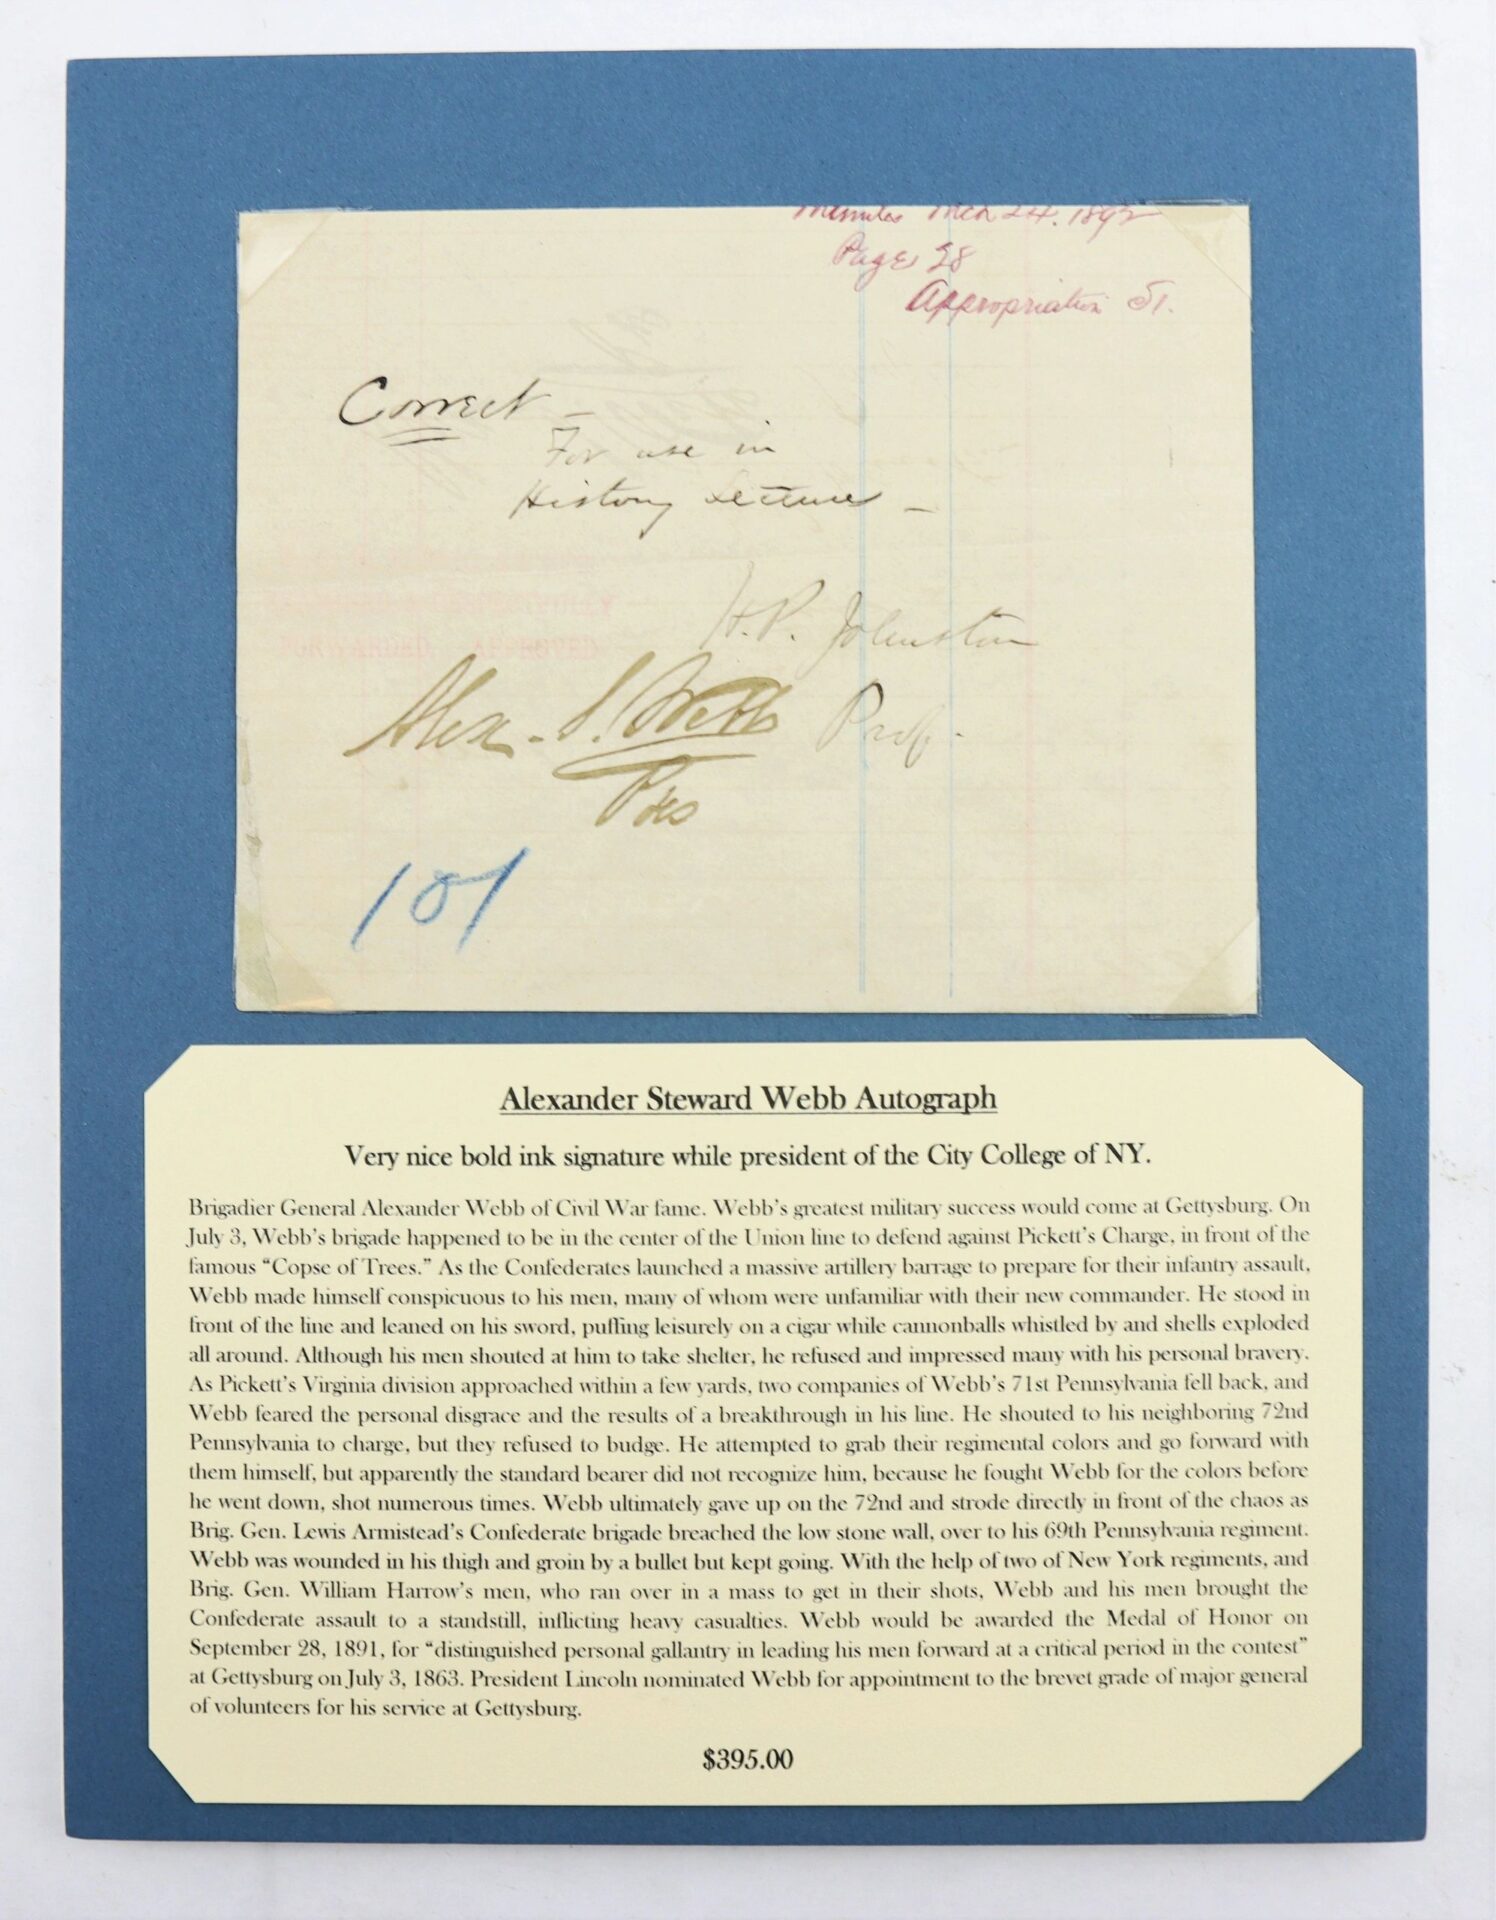 Minutes Mch 24. 1892
Page 28
Appropriation 51.
Correct -
For use in
History Lectures -
H.P. Johnston
Alex. S. Webb Prof.
Pres
101
FORWARDED. APPROVED
Alexander Steward Webb Autograph
Very nice bold ink signature while president of the City College of NY.
Brigadier General Alexander Webb of Civil War fame. Webb's greatest military success would come at Gettysburg. On
July 3, Webb's brigade happened to be in the center of the Union line to defend against Pickett's Charge, in front of the
famous "Copse of Trees." As the Confederates launched a massive artillery barrage to prepare for their infantry assault,
Webb made himself conspicuous to his men, many of whom were unfamiliar with their new commander. He stood in
front of the line and leaned on his sword, puffing leisurely on a cigar while cannonballs whistled by and shells exploded
all around. Although his men shouted at him to take shelter, he refused and impressed many with his personal bravery.
As Pickett's Virginia division approached within a few yards, two companies of Webb's 71st Pennsylvania fell back, and
Webb feared the personal disgrace and the results of a breakthrough in his line. He shouted to his neighboring 72nd
Pennsylvania to charge, but they refused to budge. He attempted to grab their regimental colors and go forward with
them himself, but apparently the standard bearer did not recognize him, because he fought Webb for the colors before
he went down, shot numerous times. Webb ultimately gave up on the 72nd and strode directly in front of the chaos as
Brig. Gen. Lewis Armistead's Confederate brigade breached the low stone wall, over to his 69th Pennsylvania regiment.
Webb was wounded in his thigh and groin by a bullet but kept going. With the help of two of New York regiments, and
Brig. Gen. William Harrow's men, who ran over in a mass to get in their shots, Webb and his men brought the
Confederate assault to a standstill, inflicting heavy casualties. Webb would be awarded the Medal of Honor on
September 28, 1891, for "distinguished personal gallantry in leading his men forward at a critical period in the contest"
at Gettysburg on July 3, 1863. President Lincoln nominated Webb for appointment to the brevet grade of major general
of volunteers for his service at Gettysburg.
$395.00